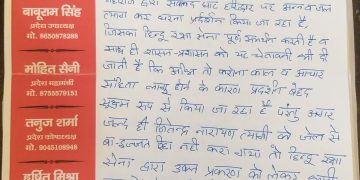 बाबूराम सिंह
प्रदेश उपाध्यक्ष
मो. 8650878286
मोहित सैनी
प्रदेश महामंत्री
मो. 9755579151
तनुज शर्मा
प्रदेश कोषाध्यक्ष
मो. 9045108948
हर्षित मिश्रा
द्वारा घाट हरिद्वार पर अन्न जल
त्याग कर धरना प्रदर्शन किया जा रहा है
जिसका हिन्दू रक्षा सेना पूर्ण समर्थन करती है व
साथ ही शासन-प्रशासन को यह चेतावनी भी दी
जाती है कि अभी तो करोना काल व आचार
संहिता लागू होने के कारण प्रदर्शन बेहद
सूक्ष्म रूप से किया जा रहा है परंतु अगर
जल्द ही जितेन्द्र नारायण त्यागी को जेल से
बा-इज्जत रिहा नहीं करा गया तो हिन्दू रक्षा
सेना द्वारा उक्त प्रकरण को लेकर